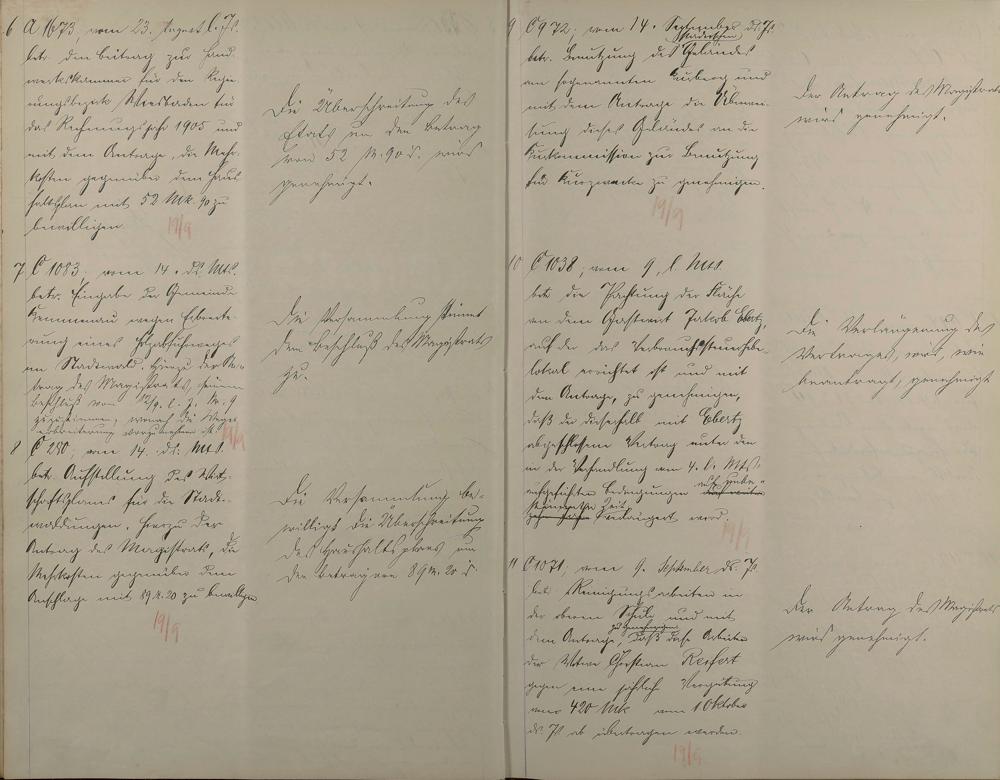 6 A 1673, vom 23. August l. Js.
betr. den Beitrag zur Hand-
werkskammer für den Regie-
rungsbezirk Wiesbaden für
das Rechnungsjahr 1905 und
mit dem Antrage, die Mehr-
kosten gegenüber dem Haus-
haltsplan mit 52 Mk. 90 zu
bewilligen.
19/9
Die Überschreitung des
Etats um den Betrag
von 52 M. 90 d. wird
genehmigt.
7 C 1083, vom 14. ds. Mts.
betr. Eingabe der Gemeinde
Kemmenau wegen
eines Holzabfuhrweges
im Stadtwald. Hierzu der An-
trag des Magistrats, seinem
Beschluß vom 12/9. l. J. M. 9
zuzustimmen, wonach die Wege-
verbreiterung vorzunehmen ist.
19/9
Die Versammlung stimmt
dem Beschluß des Magistrats
zu.
8 C 280, vom 14. ds. Mts.
betr. Aufstellung des Wirt-
schaftsplans für die Stadt-
waldungen. Hierzu der
Antrag des Magistrats, die
Mehrkosten gegenüber dem
Anschlage mit 89 M. 20 zu bewilligen
19/9
Die Versammlung be-
willigt die Überschreitung
des Haushaltsplanes um
den Betrag von 89 M. 20 d.
9 C 972, vom 14. September ds. Js.
betr. Benutzung des städtischen Geländes
am sogenannten und
mit dem Antrage die Überwei-
sung dieses Geländes an die
Kurkommission zur Benutzung
für Kurzwecke zu genehmigen.
19/9
Der Antrag des Magistrats
wird genehmigt.
10 C 1038, vom 9. l. Mts.
betr. die Pachtung der Fläche
von dem Gastwirt Jakob Ebertz,
auf der das Verbrauchssteuerhebe-
lokal errichtet ist und mit
dem Antrage, zu genehmigen,
daß der dieserhalb mit Ebertz
abgeschlossene Vertrag unter den
in der Verhandlung vom 4. l. Mts.
aufgeführten Bedingungen auf unbe-
stimmte Zeit
verlängert werd.
19/9
Die Verlängerung des
Vertrages, wird, wie
beantragt, genehmigt
11 C 1071, vom 9. September ds. Js.
betr. Reinigungsarbeiten in
der oberen Schule und mit
dem Antrage, daß diese Arbeiten
der Witwe Christian Reifert
gegen eine jährliche Vergütung
von 420 Mk vom 1 Oktober
ds. Js ab übertragen werden.
19/9
Der Antrag des Magistrats
wird genehmigt.